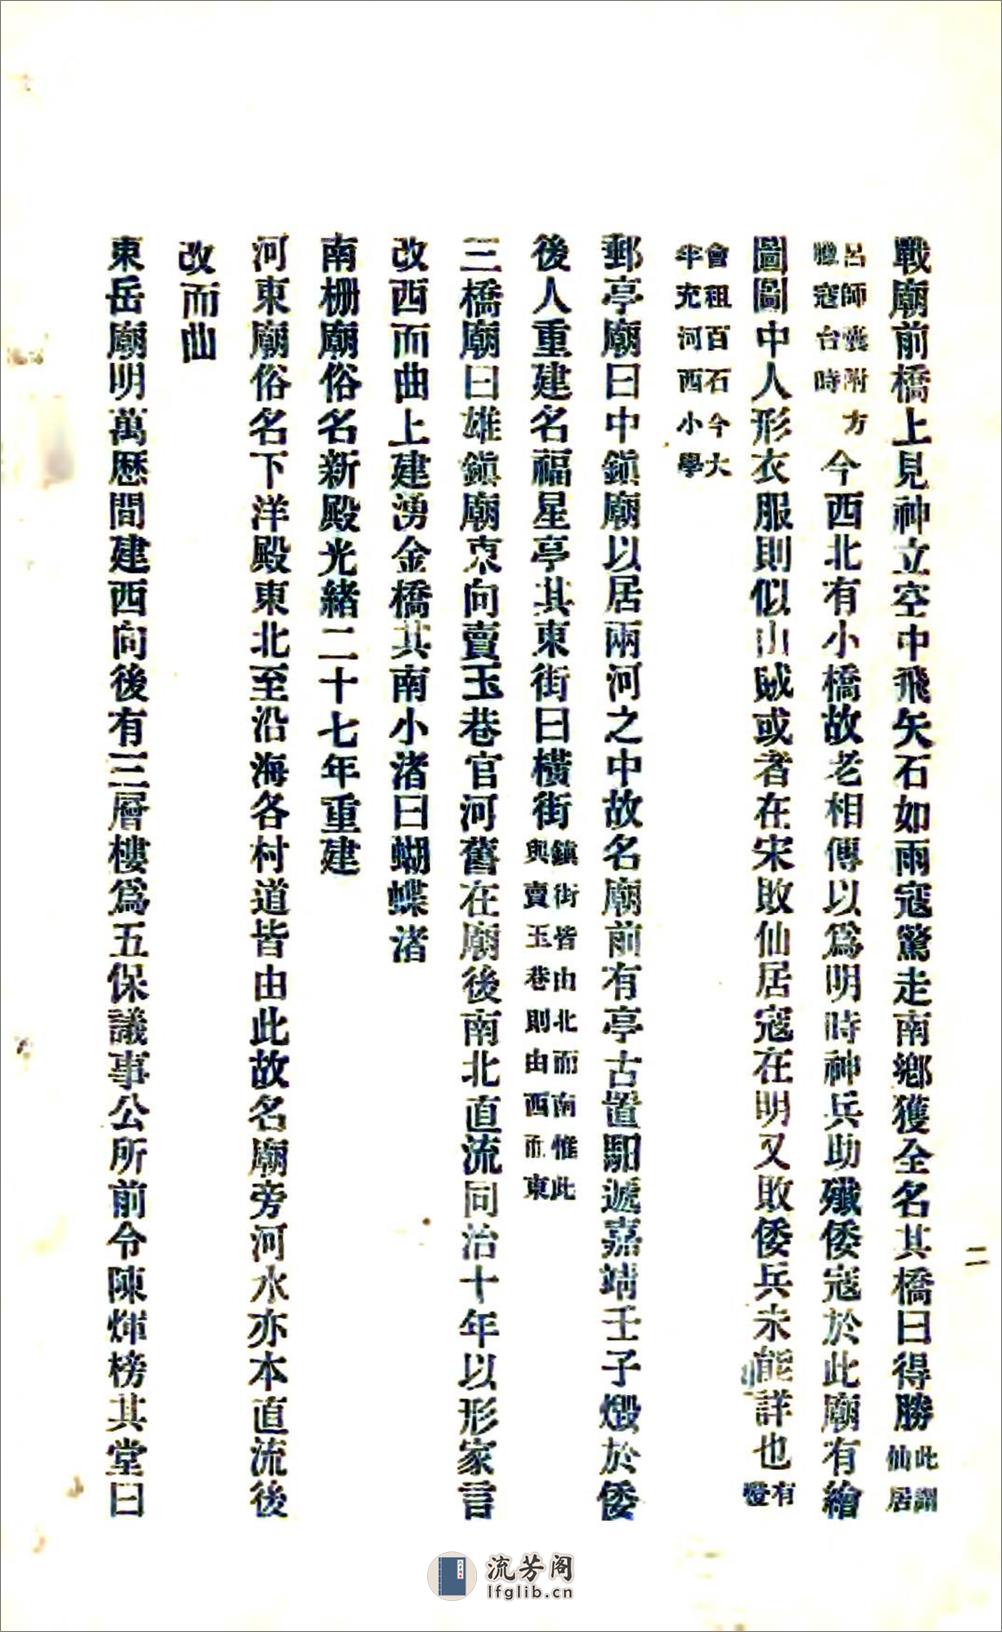 戰廟前橋上見神立空中飛矢石如雨寇驚走南鄉獲全名其橋曰得勝此謂仙居
呂師囊附方臘寇台時今西北有小橋故老相傳以爲明時神兵助殲倭寇於此廟有繪
圖圖中人形衣服則似山賊或者在宋敗仙居寇在明又敗倭兵未能詳也有燈
會租百石今大半充河西小學
郵亭廟曰中鎭廟以居兩河之中故名廟前有亭古置馹遞嘉靖壬子燬於倭
後人重建名福星亭其東街曰橫街鎭街皆由北而南惟此與賣玉巷則由西而東
三橋廟曰雄鎭廟東向賣玉巷官河舊在廟後南北直流同治十年以形家言
改西而曲上建湧金橋其南小渚曰蝴蝶渚
南柵廟俗名新殿光緒二十七年重建
河東廟俗名下洋殿東北至沿海各村道皆由此故名廟旁河水亦本直流後
改而曲
東岳廟明萬厯間建西向後有三層樓爲五保議事公所前令陳煇榜其堂曰
二
流芳阁
lfglib.cn